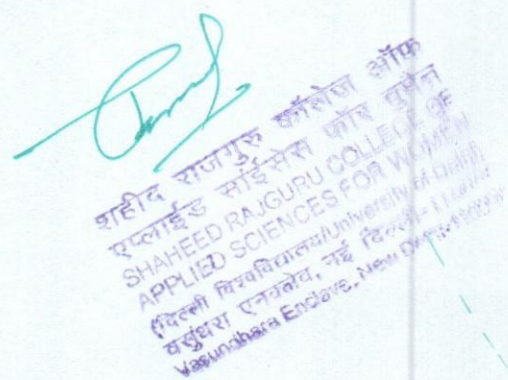 शहीद राजगुरु कॉलेज ऑफ
एप्लाईड साईंसेस फॉर वुमेन
SHAHEED RAJGURU COLLEGE OF
APPLIED SCIENCES FOR WOMEN
(दिल्ली विश्वविद्यालय/University of Delhi)
वसुंधरा एनक्लेव, नई दिल्ली-
Vasundhara Enclave, New Delhi-